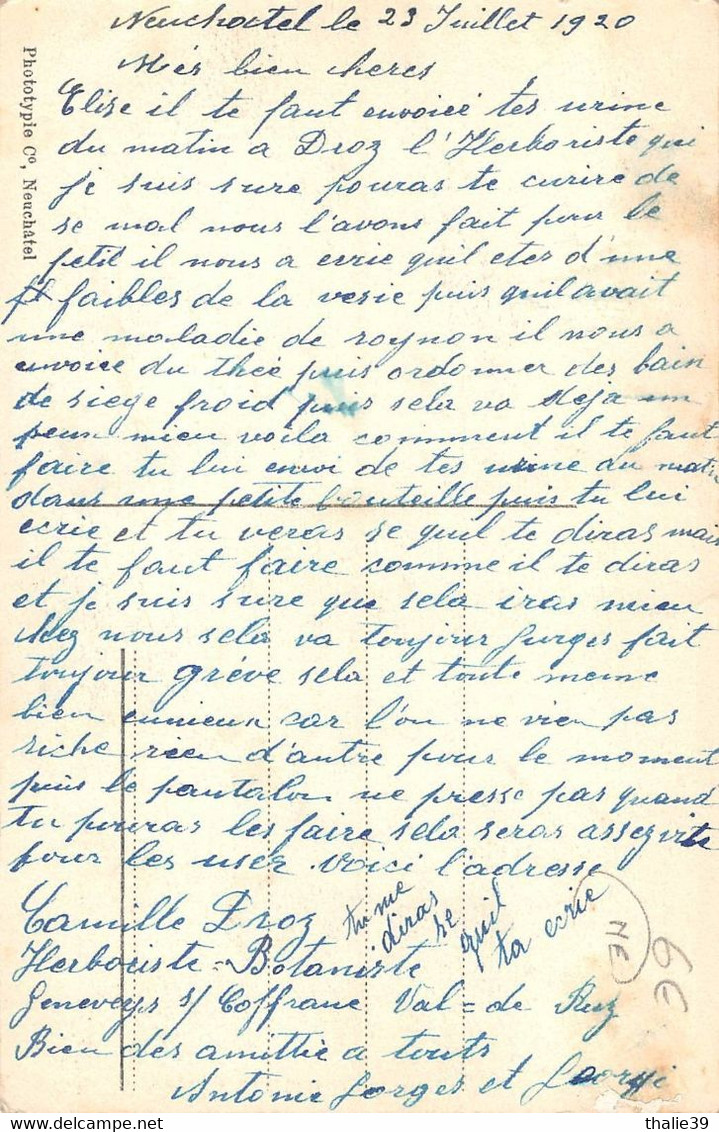 Neuchatel le 23 Juillet 1920
Mes bien cheres
Elise il te faut envoiée tes urine
du matin a Droz l'Herboriste qui
je suis sure pouras te curire de
se mal nous l'avons fait pour le
petit il nous a ecrie quil etes d'une
faibles de la vesie puis quil avait
une maladie de roynon il nous a
envoiée du thée puis ordonner des bain
de siege froid puis sela va deja un
peux mieu voila commment il te faut
faire tu lui envoi de tes urine du matin
dans une petite bouteille puis tu lui
ecrie et tu veras se quil te diras mais
il te faut faire comme il te diras
et je suis sure que sela iras mieu
chez nous sela va toujour Gorges fait
toujour grève sela et toute meme
bien enuieux car l'on ne vien pas
riche rien d'autre pour le moment
puis le pantalon ne presse pas quand
tu pouras les faire sela seras assez vite
pour les usez voici l'adresse
Camille Droz
Herboriste=Botaniste
Geneveys s/ Coffrane Val=de Ruz
Bien des amittie a touts
Antonie Gorges et Georgi
tu me
diras
se
quil
ta ecrie
NE
6€
Phototypie Co, Neuchâtel
thalie39